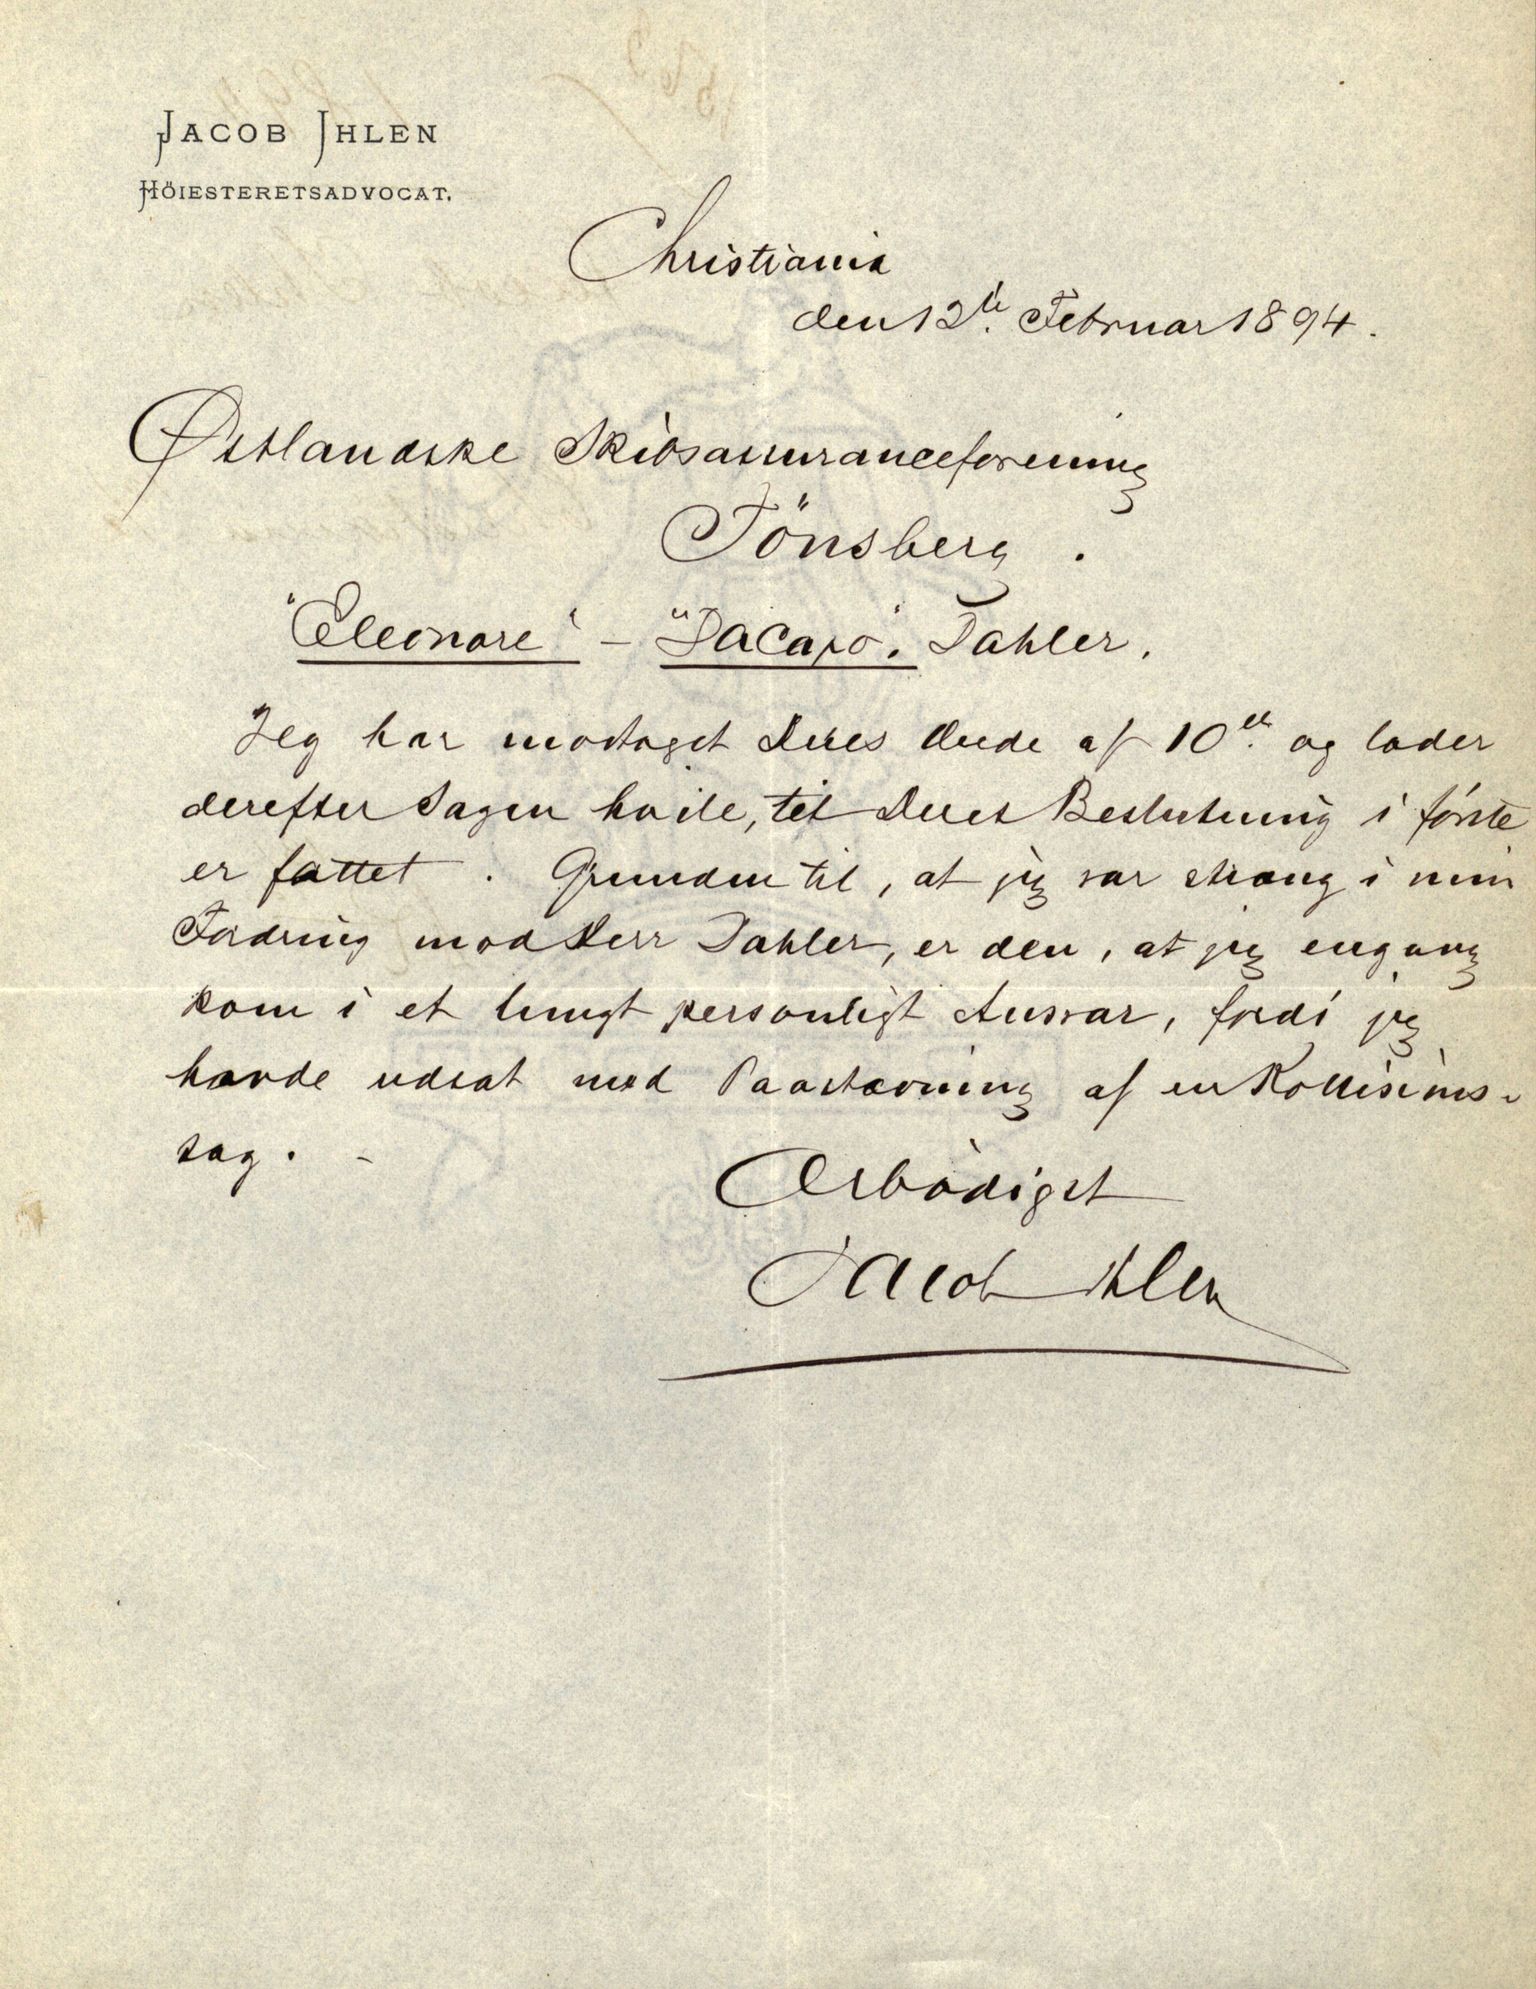 JACOB IHLEN
HÖIESTERETSADVOCAT.
Christiania
den 12te Februar 1894.
Østlandske Skibsassuranceforening
Tönsberg.
"Eleonore" - "Dacapo". Dahler.
Jeg har modtaget Deres Ærede af 10de. og lader
derefter Sagen hvile, til Deres Beslutning i første
er fattet. Grunden til, at jeg var streng i min
Fordring mod Herr Dahler, er den, at jeg engang
kom i et tungt personligt Ansvar, fordi jeg
havde udsat med Paastævning af en Kollisions-
sag. -
Ærbødigst
Jacob Ihlen